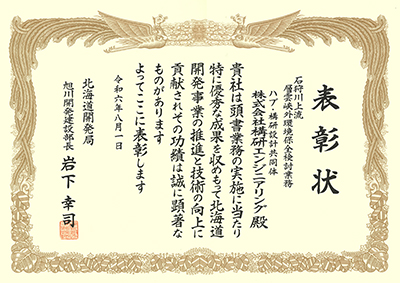 表彰状
石狩川上流
層雲峡外環境保全検討業務
ハブ・構研設計共同体
株式会社構研エンジニアリング 殿
貴社は頭書業務の実施に当たり
特に優秀な成果を収めもって北海道
開発事業の推進と技術の向上に
貢献されその功績は誠に顕著な
ものがあります
よってここに表彰します
令和六年八月一日
北海道開発局
旭川開発建設部長 岩下幸司